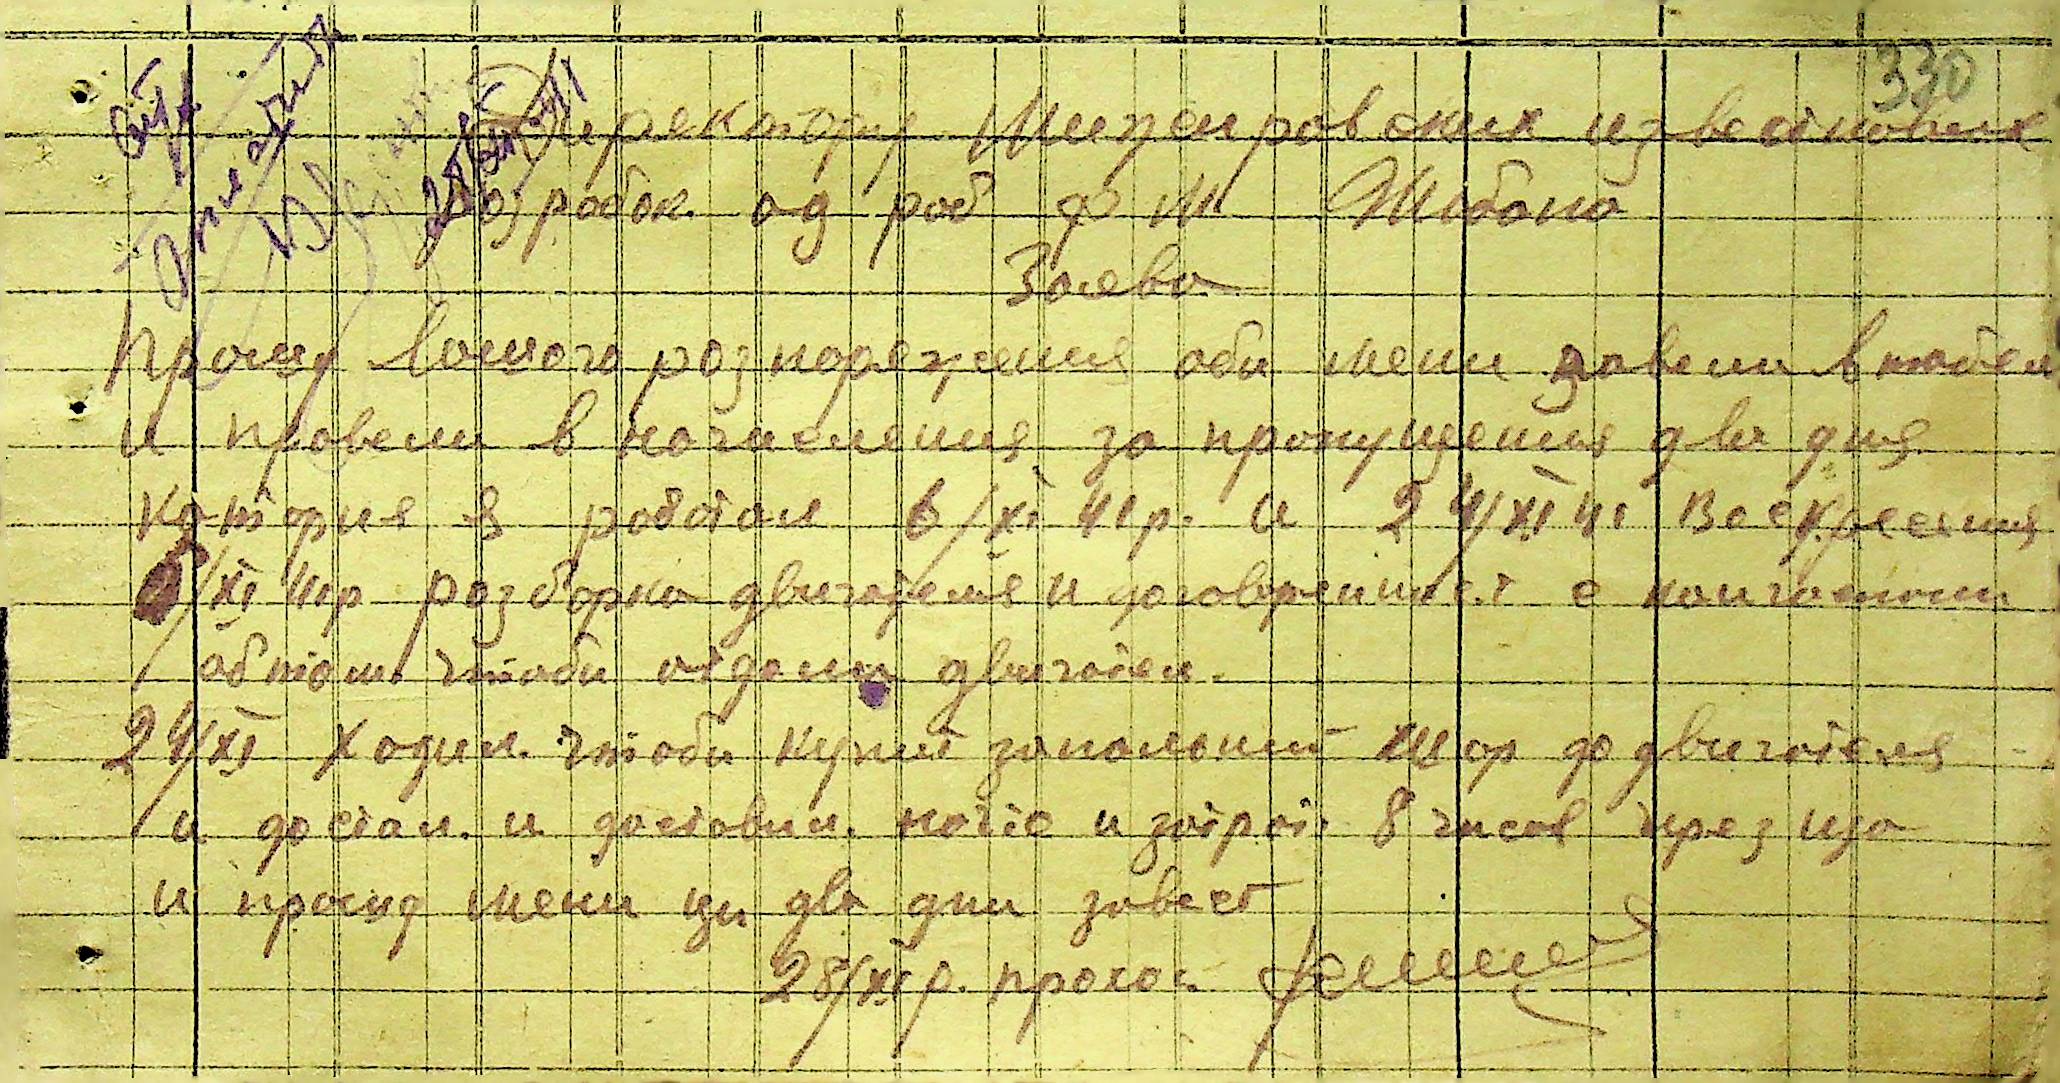 330
Диряктору Межировских известкових
розробок од роб ф М Жибоно
Заява
Прошу Вашого розпоряжения аби мени завели в табел
и провели в начисления за пропущения два дня
котория я работал 6/XI 41р. и 24/XI 41 Воскресения
6/XI 41р розборка двигателя и договореност с
об том чтоби отдали двигател.
24/XI Ходил. чтоби купит запальний шар до двигателя
и достал. и доставил. на и затрат. 8 часов
и прошу мени ци два дни завест
28/XI р. прохат.